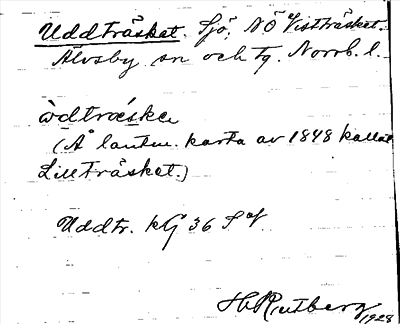 Uddträsket. Sjö, NÖ Vistträsket.
Älvsby sn och tg. Norrb. l.
òdtræ´ske
(Å lantm. karta av 1848 kallat
Lillträsket.)
Uddtr. kG 36 S of
H. Rutberg 1928